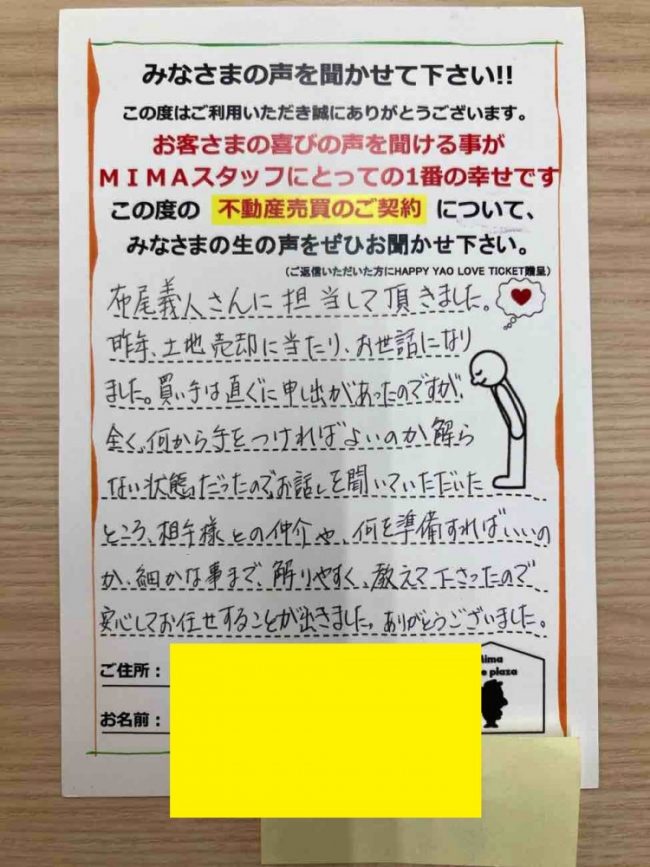 みなさまの声を聞かせて下さい!!
この度はご利用いただき誠にありがとうございます。
お客さまの喜びの声を聞ける事が
ＭＩＭＡスタッフにとっての1番の幸せです
この度の 不動産売買のご契約 について、
みなさまの生の声をぜひお聞かせ下さい。
(ご返信いただいた方にHAPPY YAO LOVE TICKET贈呈)
布尾義人さんに担当して頂きました。
昨年、土地売却に当たり、お世話になり
ました。買い手は直ぐに申し出があったのですが、
全く、何から手をつければよいのか解ら
ない状態だったので、お話しを聞いていただいた
ところ、相手様との仲介や、何を準備すればいいの
か、細かな事まで、解りやすく、教えて下さったので
安心してお任せすることが出きました。ありがとうございました。
ご住所：
お名前：
Mima
e plaza